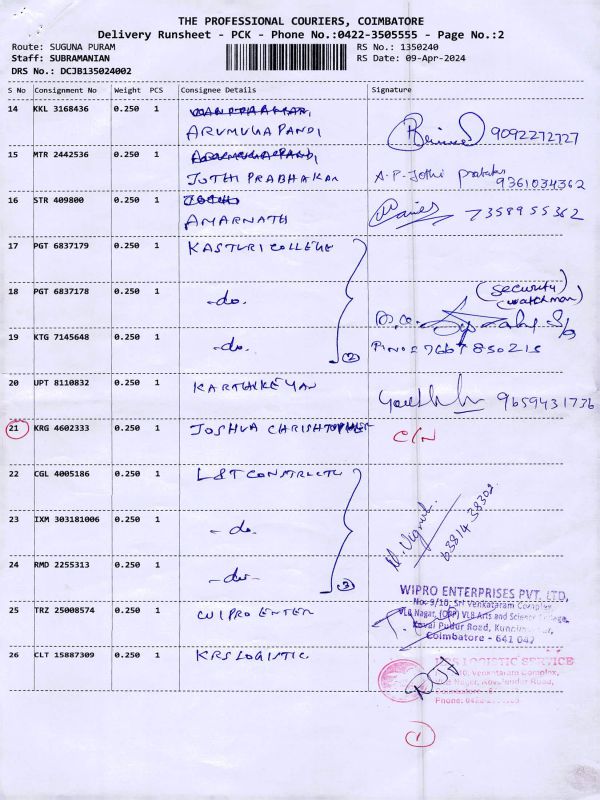 THE PROFESSIONAL COURIERS, COIMBATORE
Delivery Runsheet - PCK - Phone No.:0422-3505555 - Page No.:2
Route: SUGUNA PURAM RS No.: 1350240
Staff: SUBRAMANIAN RS Date: 09-Apr-2024
DRS No.: DCJB135024002
S No Consignment No Weight PCS Consignee Details Signature
14 KKL 3168436 0.250 1
ARUMUGA PANDI 9092272727
15 MTR 2442536 0.250 1 ARUMUGA PANDI
JOTHI PRABHAKAR A.P. Jothi
9361034362
16 STR 409800 0.250 1 JOTHI
AMARNATH 7358955362
17 PGT 6837179 0.250 1 KASTURI COLLEGE
18 PGT 6837178 0.250 1 -do. (security)
(watchman)
19 KTG 7145648 0.250 1 -do. (2)
20 UPT 8110832 0.250 1 KARTHIKEYAN 9659431736
21 KRG 4602333 0.250 1 JOSHUA CHRISHTOPHER C/N
22 CGL 4005186 0.250 1 L&T CONSTRUCTC
23 IXM 303181006 0.250 1 -do. N. Vignesh 63814 38302
24 RMD 2255313 0.250 1 -do- (3)
WIPRO ENTERPRISES PVT. LTD,
No. 9/10, Sri Venkataram Complex,
25 TRZ 25008574 0.250 1 WIPRO ENTER VLB Nagar, (OPP) VLB Arts and Science College,
Kovai Pudur Road,
Coimbatore - 641 042
26 CLT 15887309 0.250 1 KRS LOGISTIC LOGISTIC SERVICE
Venkataram Complex,
Nagar, Kovaipudur Road,
Coimbatore
Phone: 0422-
(1)